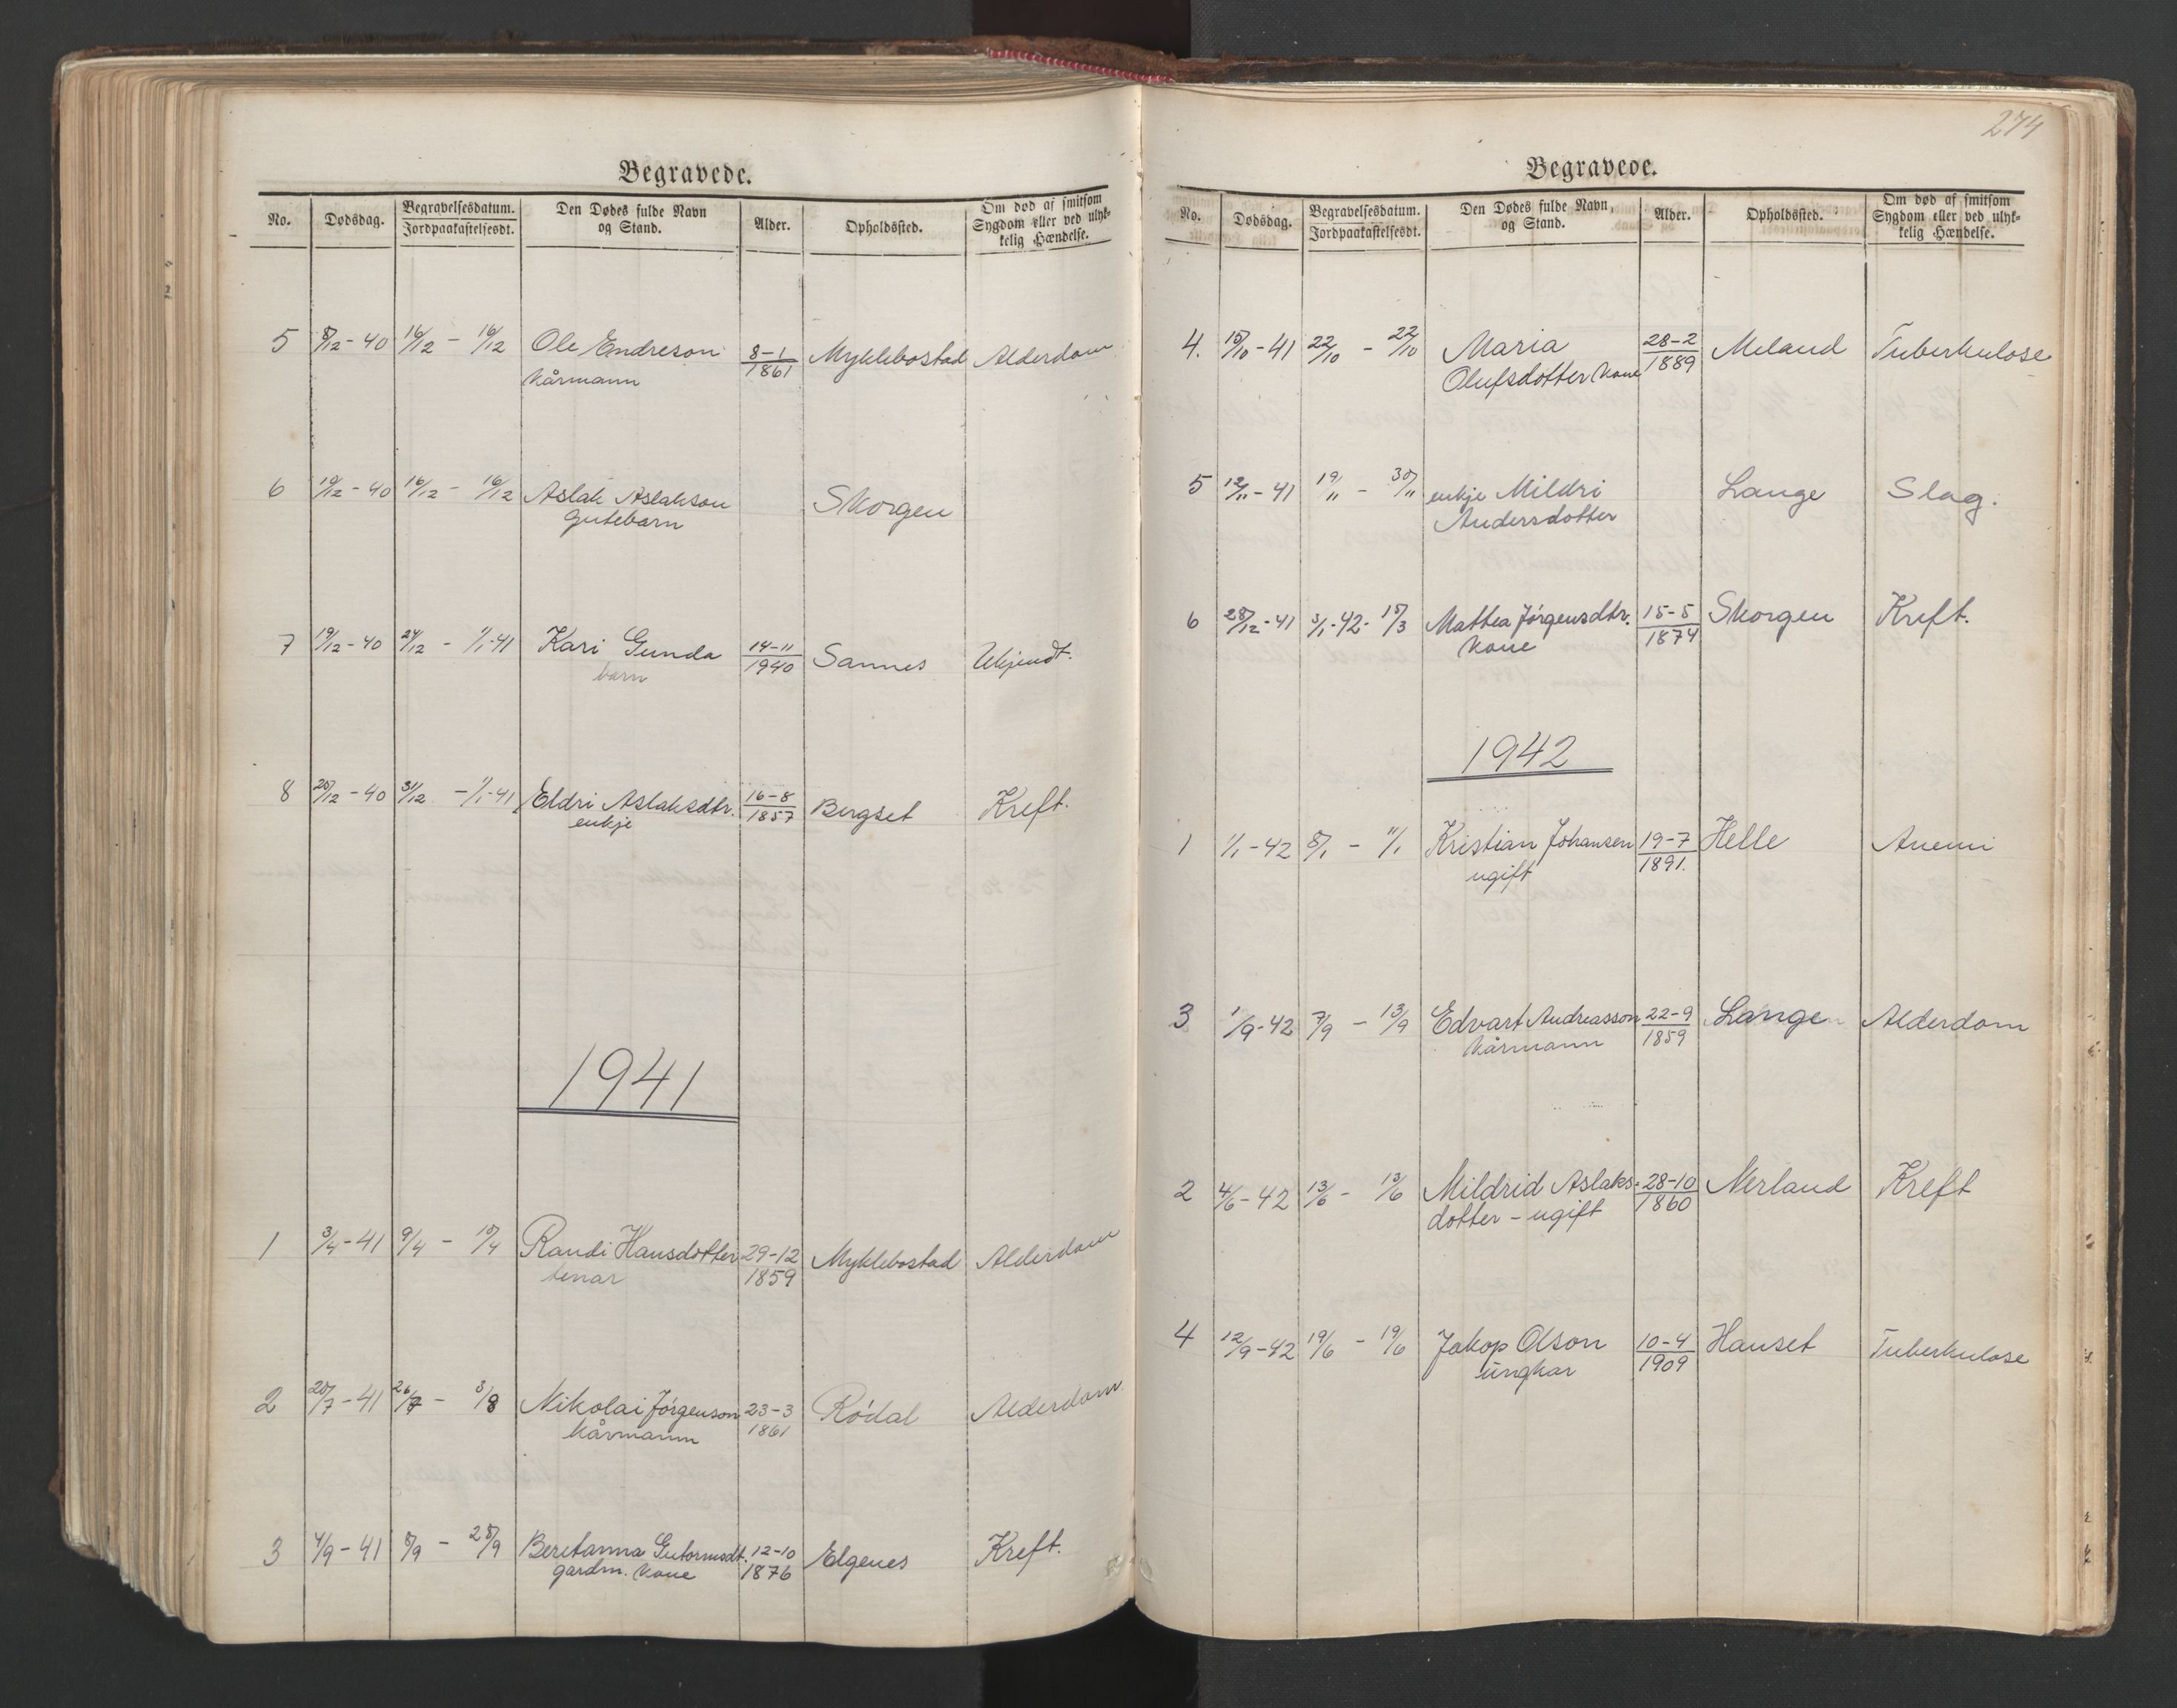 Begravede.
No. Dødsdag. Begravelsesdatum. Jordpaakastelsesdt. Den Dødes fulde Navn og Stand. Alder. Opholdssted. Om død af smitsom Sygdom eller ved ulyk- kelig Hændelse.
5 8/12-40 16/12 - 16/12 Ole Endreson 8-1 1861 Myklebostad Alderdom
kårmann
6 10/12-40 16/12 - 16/12 Aslak Aslakson Skorgen
gutebarn
7 19/12-40 24/12 - 1/1-41 Kari Gunda 14-11 1940 Sannes Ukjendt.
barn
8 20/12-40 31/12 - 1/1-41 Eldri Aslaksdtr. 16-8 1857 Bergset Kreft.
enkje
1941
1 3/4-41 9/4 - 15/4 Randi Hansdotter 29-12 1859 Myklebostad Alderdom
tenar
2 20/7-41 26/7 - 3/8 Nikolai Jørgenson 23-3 1861 Rødal Alderdom
kårmann
3 4/9-41 8/9 - 28/9 Beretanna Gutormsdt. 12-10 1876 Elgenes Kreft.
gardm. kone
274
Begravede.
No. Dødsdag. Begravelsesdatum. Jordpaakastelsesdt. Den Dødes fulde Navn, og Stand. Alder. Opholdssted. Om død af smitsom Sygdom eller ved ulyk- kelig Hændelse.
4. 15/10-41 22/10 - 22/10 Maria 28-2 1889 Meland Tuberkulose
Olufsdotter kone
5 12/11-41 19/11 - 30/11 enkje Mildri Lange Slag.
Andersdotter
6 28/12-41 3/1-42- 15/3 Mattea Jørgensdtr. 15-5 1874 Skorgen Kreft.
kone
1942
1 1/1-42 8/1 - 11/1 Kristian Johansen 19-7 1891. Helle Anemi
ugift
3 1/9-42 7/9 - 13/9 Edvart Andreasson 22-9 1859 Lange Alderdom
kårmann
2 4/6-42 13/6 - 13/6 Mildrid Aslaks- 28-10 1860 Nerland Kreft
dotter - ugift
4 12/9-42 19/6 - 19/6 Jakop Olson 10-4 1909 Hanset Tuberkulose
ungkar